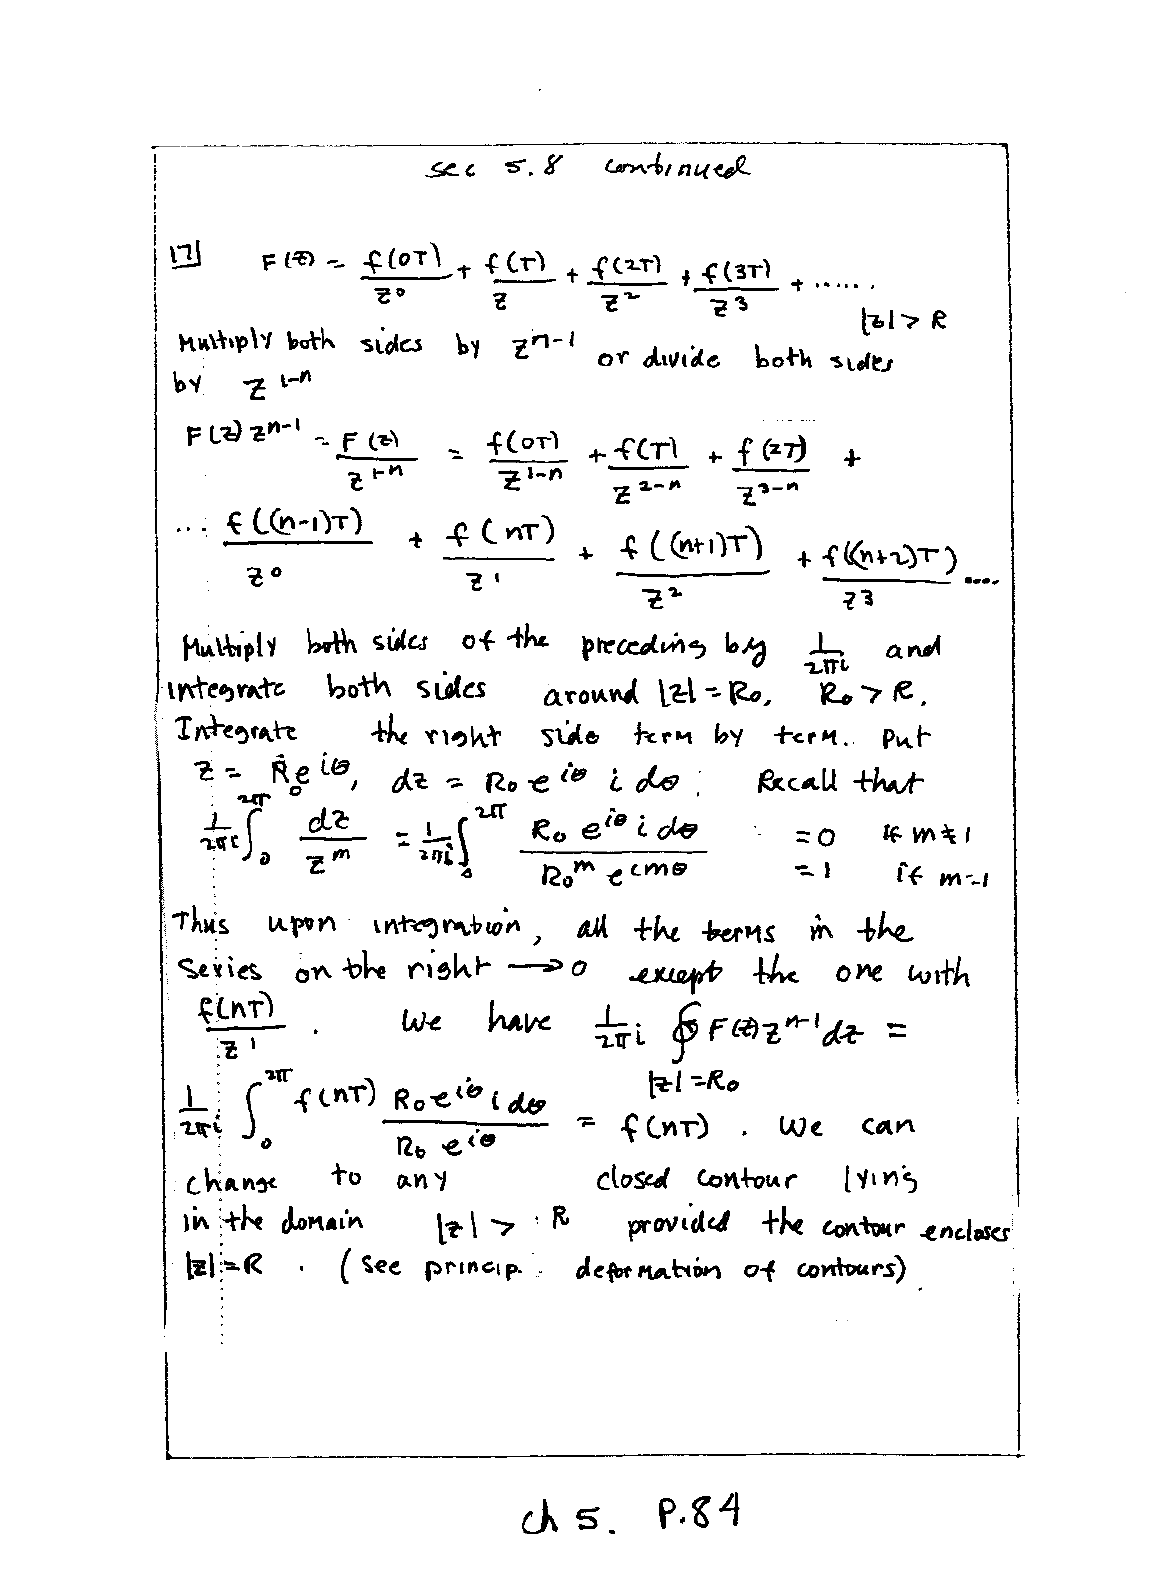 sec 5.8 continued
17] F(z) = f(0T)/z^0 + f(T)/z + f(2T)/z^2 + f(3T)/z^3 + ......
|z| > R
Multiply both sides by z^{n-1} or divide both sides
by z^{1-n}
F(z) z^{n-1} = F(z)/z^{1-n} = f(0T)/z^{1-n} + f(T)/z^{2-n} + f(2T)/z^{3-n} +
... f((n-1)T)/z^0 + f(nT)/z^1 + f((n+1)T)/z^2 + f((n+2)T)/z^3 ....
Multiply both sides of the preceding by 1/2πi and
integrate both sides around |z| = R_0, R_0 > R.
Integrate the right side term by term. Put
z = R_0 e^{iθ}, dz = R_0 e^{iθ} i dθ. Recall that
1/2πi ∫_0^{2π} dz/z^m = 1/2πi ∫_0^{2π} R_0 e^{iθ} i dθ / R_0^m e^{imθ} = 0 if m ≠ 1
= 1 if m = 1
Thus upon integration, all the terms in the
series on the right → 0 except the one with
f(nT)/z^1 . We have 1/2πi ∮ F(z) z^{n-1} dz =
|z| = R_0
1/2πi ∫_0^{2π} f(nT) R_0 e^{iθ} i dθ / R_0 e^{iθ} = f(nT) . We can
change to any closed contour lying
in the domain |z| > R provided the contour encloses
|z| = R . (see princip. deformation of contours)
ch 5. P.84